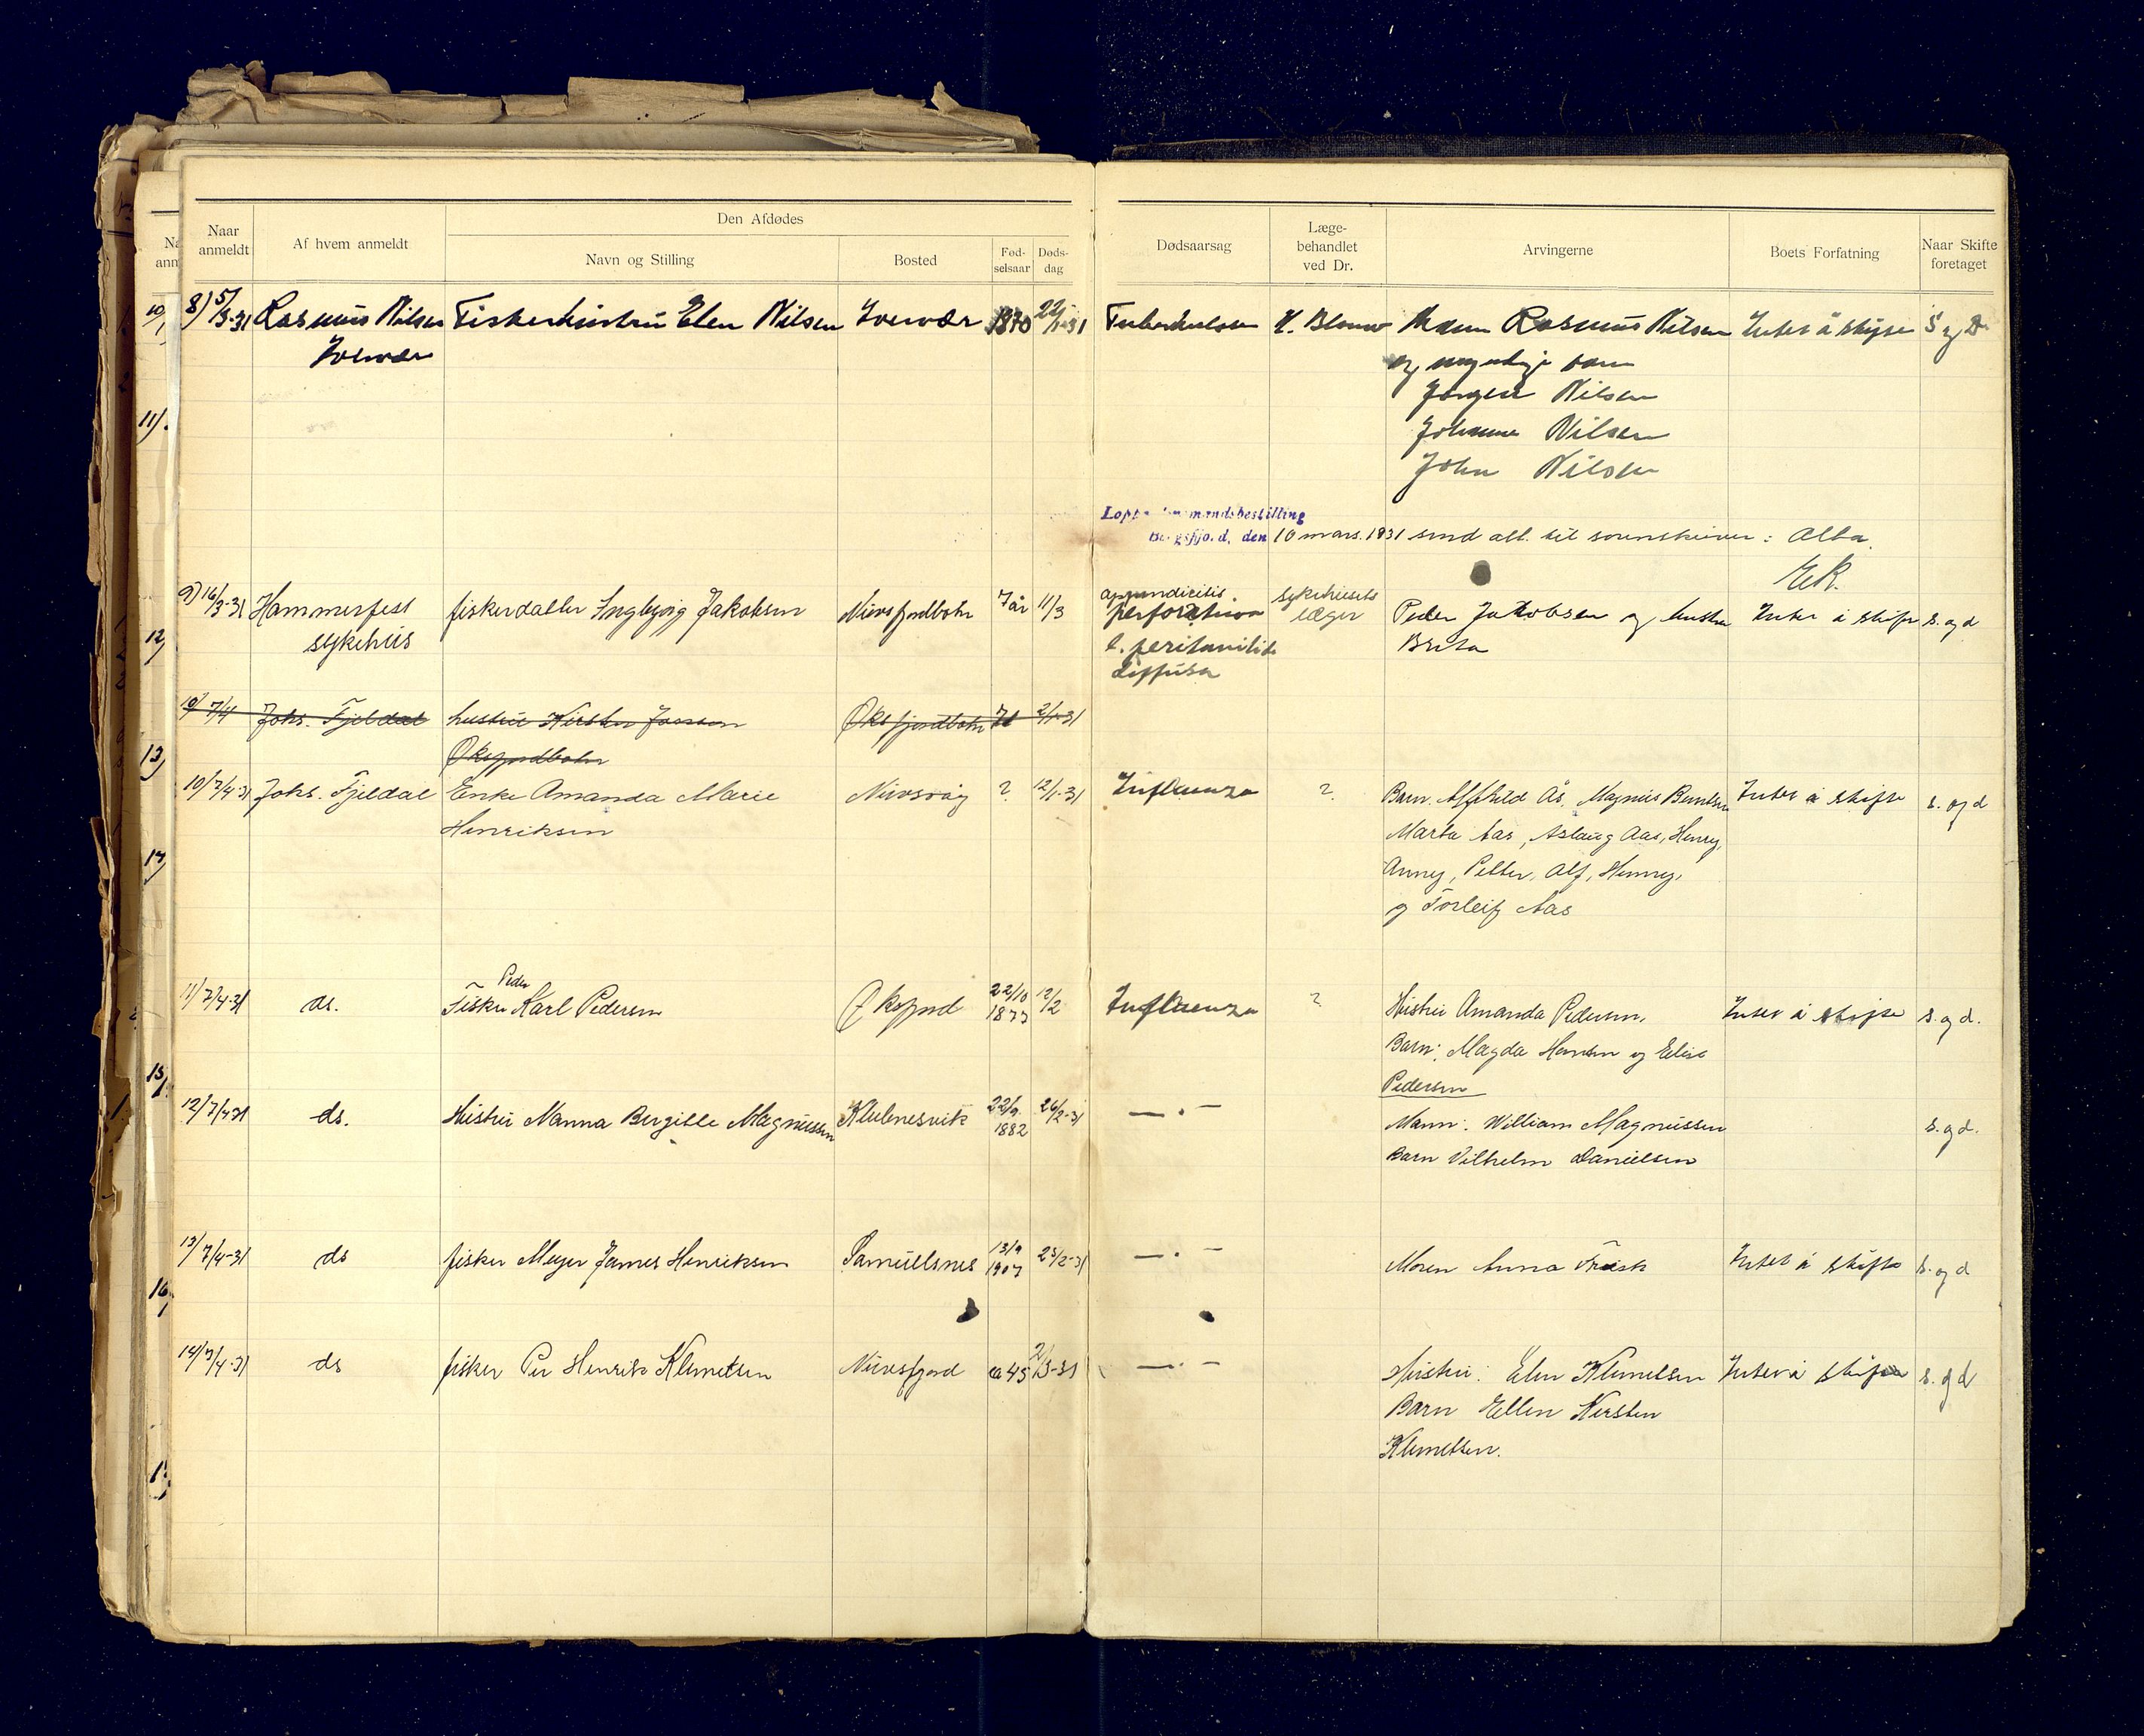 Naar anmeldt
Af hvem anmeldt
Den Afdødes
Navn og Stilling
Bosted
Fød-
selsaar
Døds-
dag
Dødsaarsag
Læge-
behandlet
ved Dr.
Arvingerne
Boets Forfatning
Naar Skifte
foretaget
8) 5/3-31 Rasmus Nilsen Fiskerhustru Elen Nilsen Loppvær 1870 22/1-31 Tuberkulose Mann Rasmus Nilsen Intet å skifte S og D
og myndige barn
Jørgen Nilsen
Johanne Nilsen
John Nilsen
Bergsfjord, den 10 mars. 1931 send all. til sorenskriver: Alta.
EK.
9) 16/3-31 Hammerfest fiskerdatter Ingbjørg Jakobsen Nuvsfjordbotn 7 år 11/3 appendicitis sykehusets Peder Jakobsen og hustru Intet å skifte s. og d
sykehus perforativa læger Brita
c. peritonitis
diffusa
10/ 7/4 Johs. Fjeldal hustru Kirsten Øksfjordbotn 71 2/1-31
Øksfjordbotn
10/ 7/4-31 Johs. Fjeldal Enke Amanda Marie Nuvsvåg ? 12/1-31 Influenza ? Barn. Alfhild Ås, Magnus Intet å skifte s. og d
Henriksen Marta Aas, Aslaug Aas, Henry,
Anny, Petter, Alf, Henry,
og Torleif Aas
Peder
11/ 7/4-31 ds. Fisker Karl Pedersen Øksfjord 22/10 1877 12/2 Influenza ? Hustru Amanda Pedersen, Intet å skifte s. og d.
Barn: Magda Hansen og Elise
Pedersen
12/ 7/4-31 ds. Hustru Nanna Bergitte Magnussen Klubnesvik 22/9 1882 26/2-31 — . — Mann: William Magnussen s. og d.
Barn Vilhelm Danielsen
13/ 7/4-31 ds fisker Meyer James Henriksen Samuelsnes 13/9 1907 25/2-31 — . — Moren Anna Intet å skifte s. og d
14/ 7/4-31 ds fisker Per Henrik Klemetsen Nuvsfjord ca 45 2/3-31 — . — Hustru: Elen Klemetsen Intet å skifte s. og d
Barn Ellen Kirsten
Klemetsen.